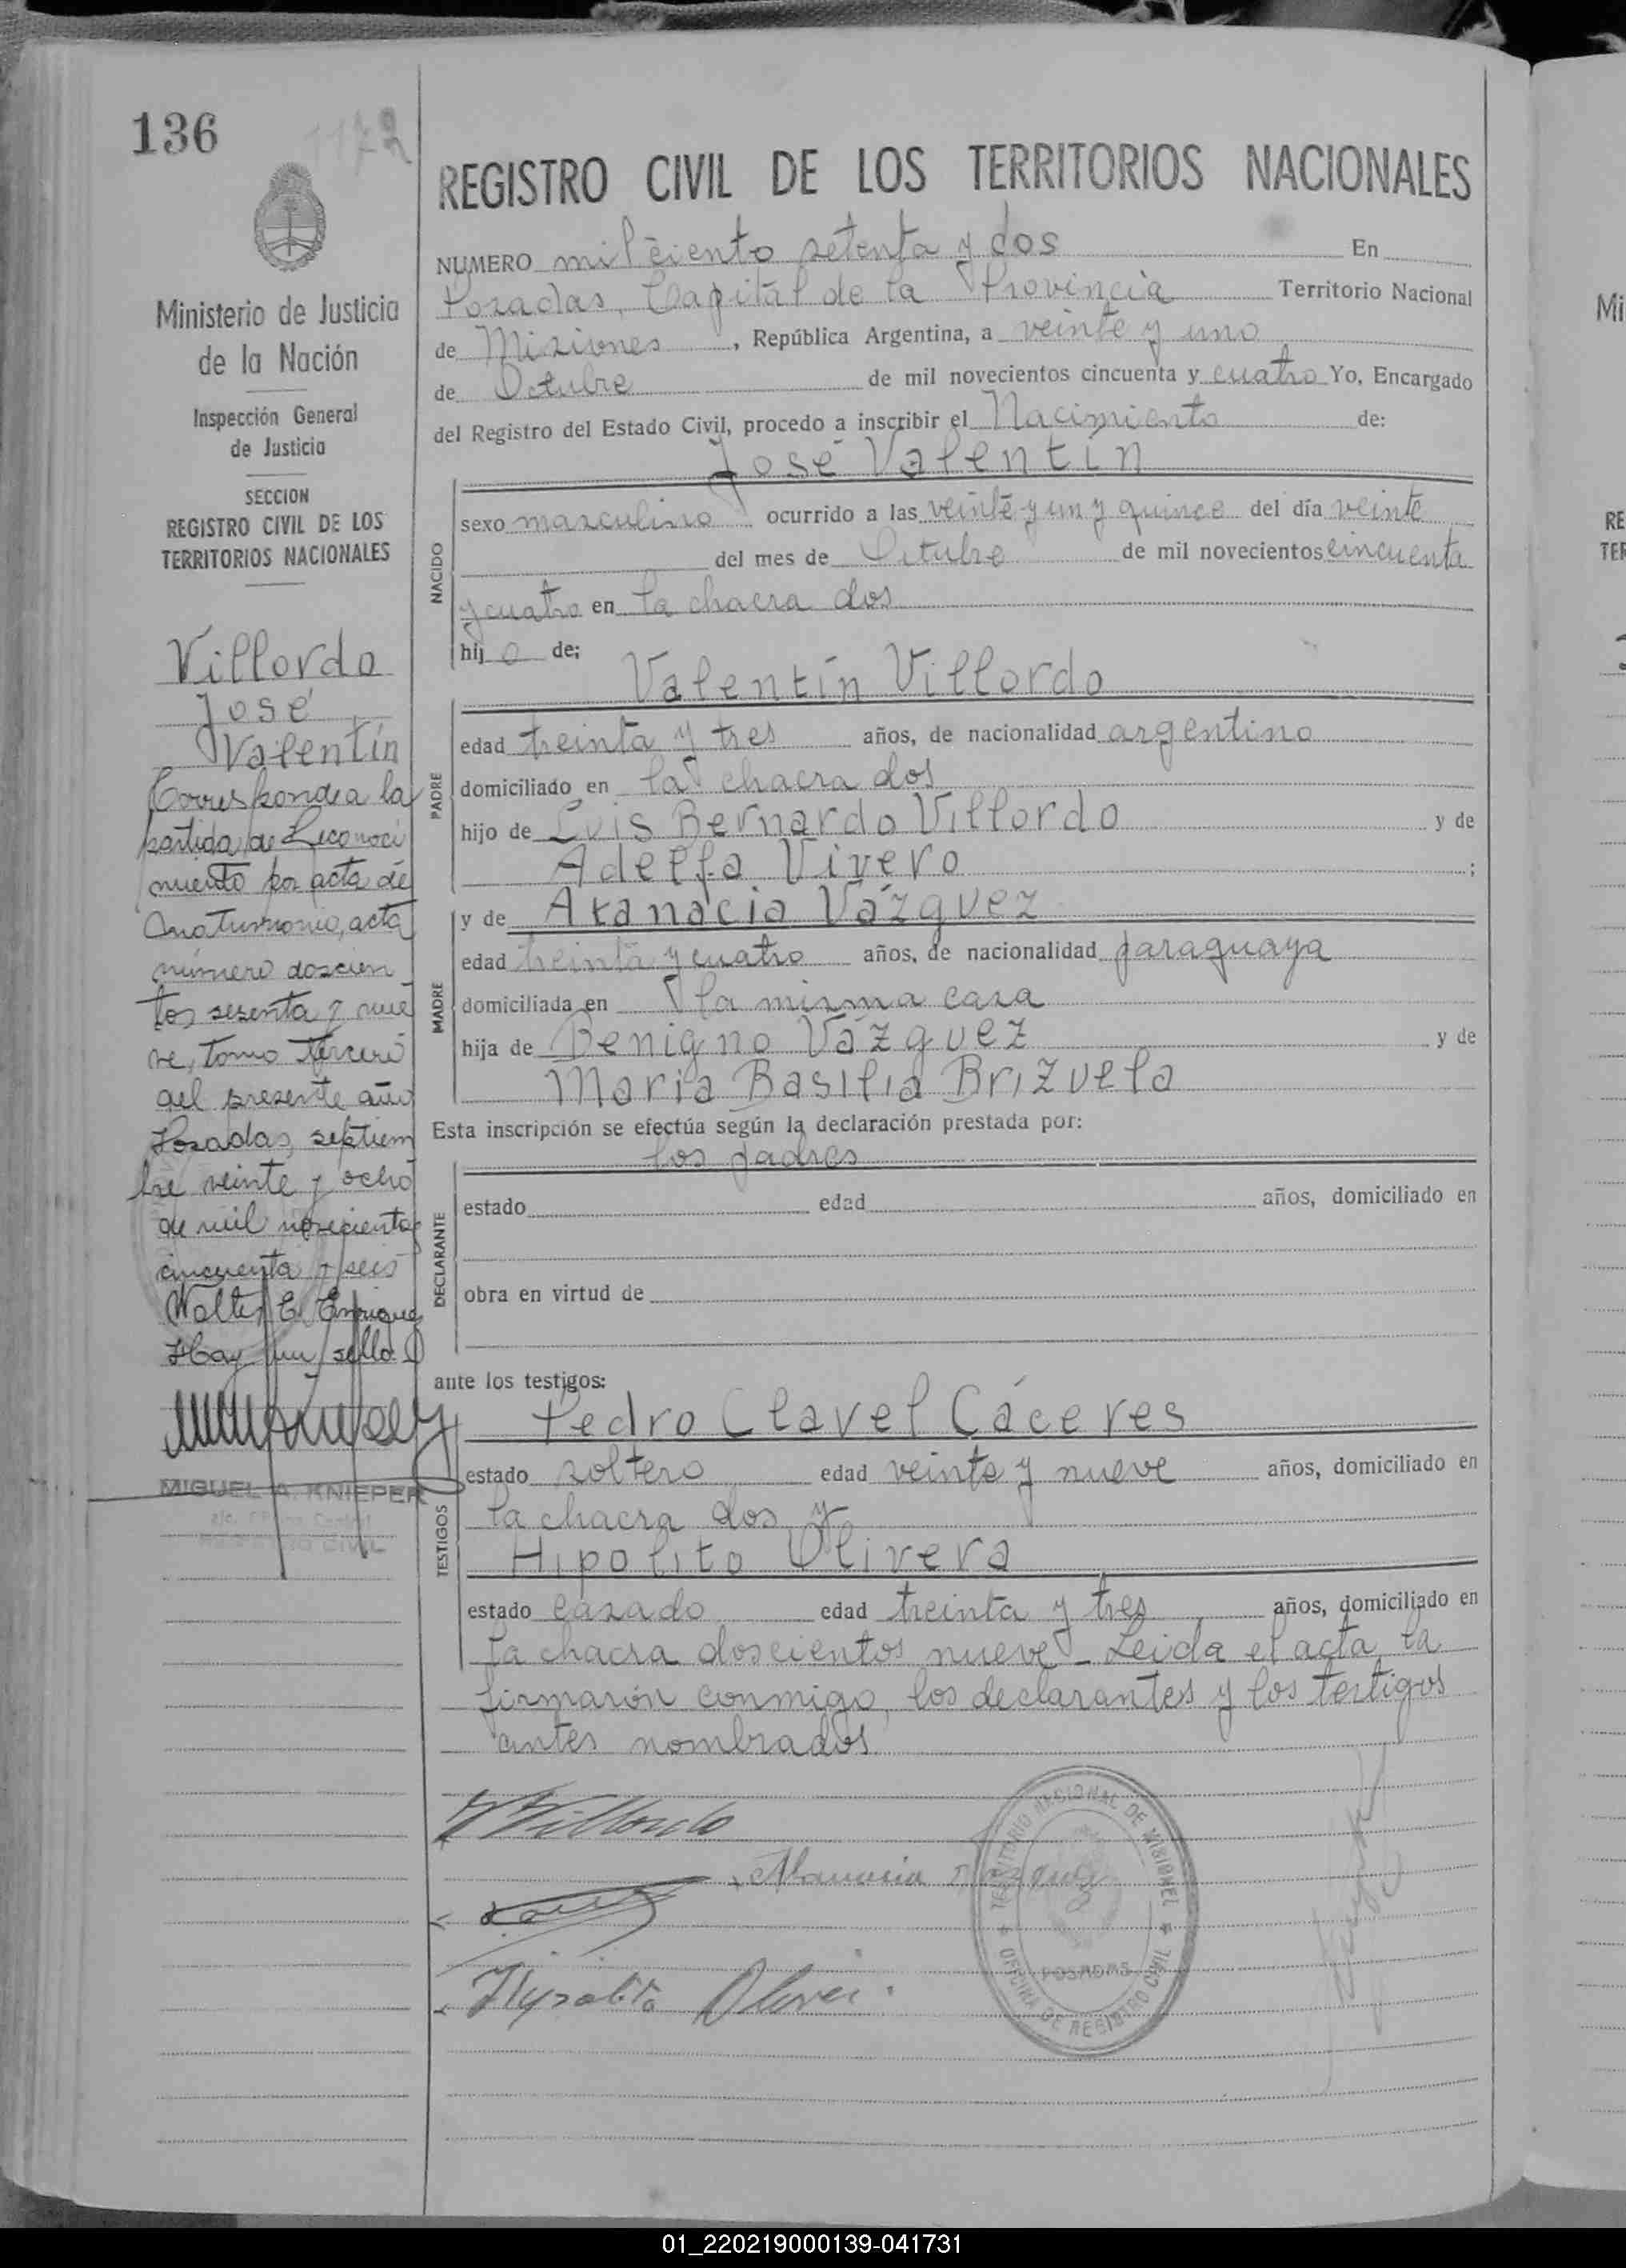 136
1172
Ministerio de Justicia
de la Nación
Inspección General
de Justicia
SECCION
REGISTRO CIVIL DE LOS
TERRITORIOS NACIONALES
Villordo
José
Valentín
Corresponde a la
partida de Reconoci
miento por acta de
Matrimonio, acta
número doscien
tos sesenta y nue
ve, tomo tercero
del presente año
Posadas, septiem
bre veinte y ocho
de mil novecientos
cincuenta y seis
Walter E. Enrique
Hay un sello
MIGUEL A. KNIEPER
REGISTRO CIVIL
REGISTRO CIVIL DE LOS TERRITORIOS NACIONALES
NUMERO mil ciento setenta y dos En
Posadas, Capital de la Provincia Territorio Nacional
de Misiones, República Argentina, a veinte y uno
de Octubre de mil novecientos cincuenta y cuatro Yo, Encargado
del Registro del Estado Civil, procedo a inscribir el Nacimiento de:
José Valentín
NACIDO
sexo masculino ocurrido a las veinte y un y quince del día veinte
del mes de Octubre de mil novecientos cincuenta
y cuatro en la chacra dos
hijo de:
Valentín Villordo
PADRE
edad treinta y tres años, de nacionalidad argentino
domiciliado en la chacra dos
hijo de Luis Bernardo Villordo y de
Adelfa Vivero ;
MADRE
y de Atanacia Vázquez
edad treinta y cuatro años, de nacionalidad paraguaya
domiciliada en la misma casa
hija de Benigno Vázquez y de
María Basilia Brizuela
Esta inscripción se efectúa según la declaración prestada por:
los padres
DECLARANTE
estado edad años, domiciliado en
obra en virtud de
ante los testigos:
Pedro Clavel Cáceres
TESTIGOS
estado soltero edad veinte y nueve años, domiciliado en
la chacra dos y
Hipolito Olivera
estado casado edad treinta y tres años, domiciliado en
la chacra doscientos nueve - Leida el acta, la
firmaron conmigo, los declarantes y los testigos
antes nombrados
V Villordo
Atanacia Vazquez
Hypolito Oliver
TERRITORIO NACIONAL DE MISIONES
POSADAS
OFICINA DE REGISTRO CIVIL
Mi
RE
TER
01_220219000139-041731